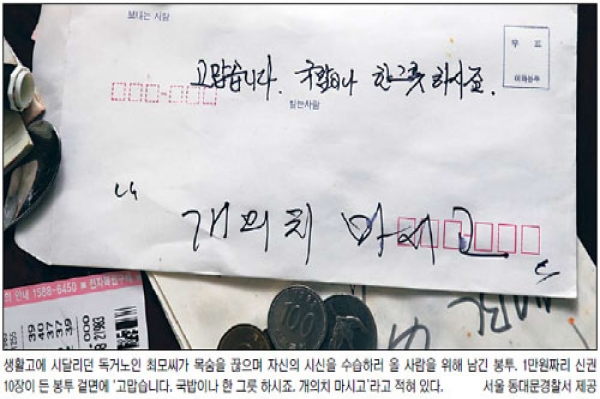 보내는 사람
우 표
고맙습니다. 국밥이나 한그릇 하시죠.
받는사람
개의치 마시고
회 안내 1588-6450 ■ 전자복권구매
39
40
37
37
39
생활고에 시달리던 독거노인 최모씨가 목숨을 끊으며 자신의 시신을 수습하러 올 사람을 위해 남긴 봉투. 1만원짜리 신권
10장이 든 봉투 겉면에 '고맙습니다. 국밥이나 한 그릇 하시죠. 개의치 마시고'라고 적혀 있다. 서울 동대문경찰서 제공